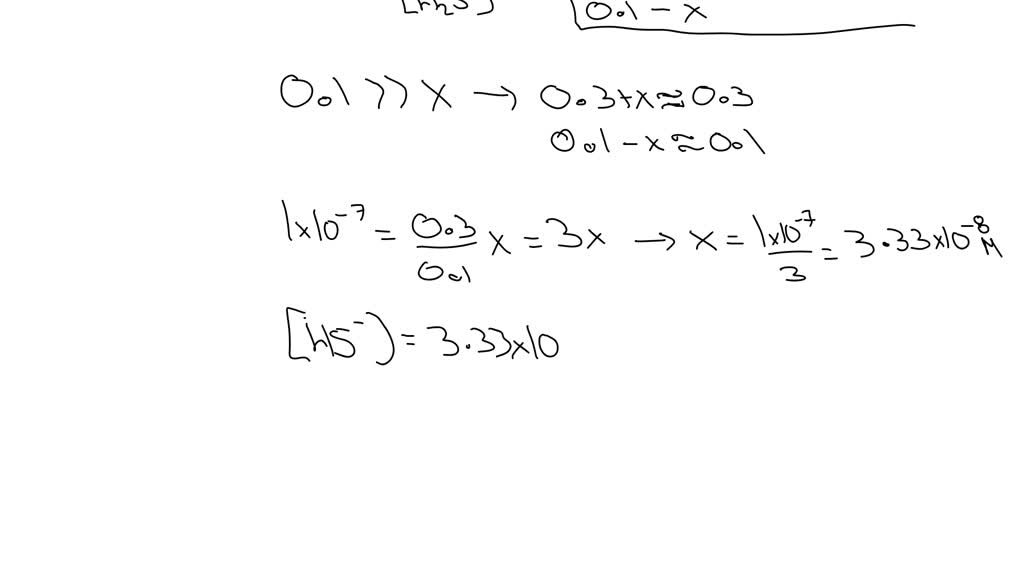 [H2S] 0.1 - x
0.1 >> x → 0.3+x ≈ 0.3
0.1 - x ≈ 0.1
1x10⁻⁷ = 0.3/0.1 x = 3x → x = 1x10⁻⁷/3 = 3.33x10⁻⁸ M
[HS⁻] = 3.33x10